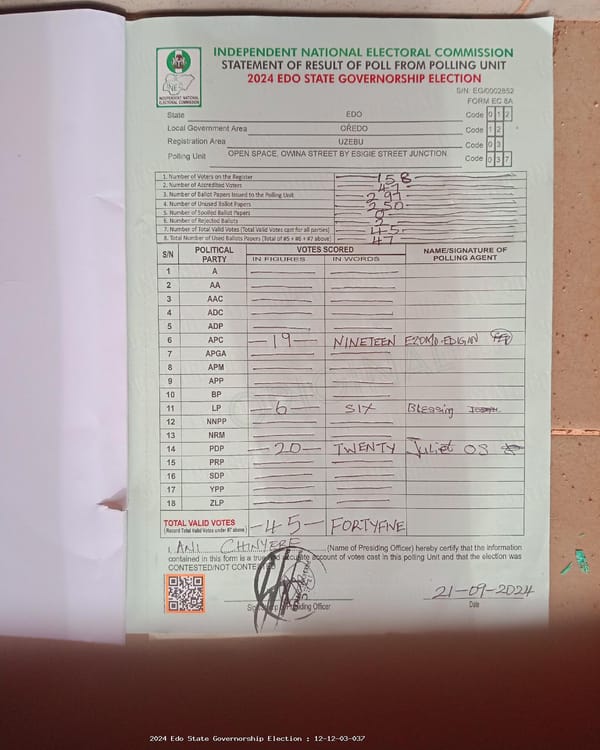 INDEPENDENT NATIONAL ELECTORAL COMMISSION
STATEMENT OF RESULT OF POLL FROM POLLING UNIT
2024 EDO STATE GOVERNORSHIP ELECTION
INDEPENDENT NATIONAL ELECTORAL COMMISSION
S/N: EG/0002852
FORM EC 8A
State EDO Code 0 1 2
Local Government Area OREDO Code 1 2
Registration Area UZEBU Code 0 3
Polling Unit OPEN SPACE, OWINA STREET BY ESIGIE STREET JUNCTION Code 0 3 7
1. Number of Voters on the Register 158
2. Number of Accredited Voters 47
3. Number of Ballot Papers Issued to the Polling Unit 297
4. Number of Unused Ballot Papers 250
5. Number of Spoiled Ballot Papers 0
6. Number of Rejected Ballots 2
7. Number of Total Valid Votes (Total Valid Votes cast for all parties) 45
8. Total Number of Used Ballots Papers (Total of #5 + #6 + #7 above) 47
S/N POLITICAL PARTY VOTES SCORED NAME/SIGNATURE OF POLLING AGENT
IN FIGURES IN WORDS
1 A
2 AA
3 AAC
4 ADC
5 ADP
6 APC -19- NINETEEN EZOMO-EDIGAN
7 APGA
8 APM
9 APP
10 BP
11 LP -6- SIX Blessing Joseph
12 NNPP
13 NRM
14 PDP -20- TWENTY Juliet OS
15 PRP
16 SDP
17 YPP
18 ZLP
TOTAL VALID VOTES -45- FORTYFIVE
(Record Total Valid Votes under #7 above)
I, ANI CHINYERE (Name of Presiding Officer) hereby certify that the information
contained in this form is a true and accurate account of votes cast in this polling Unit and that the election was
CONTESTED/NOT CONTESTED
21-09-2024
Presiding Officer Date
2024 Edo State Governorship Election : 12-12-03-037